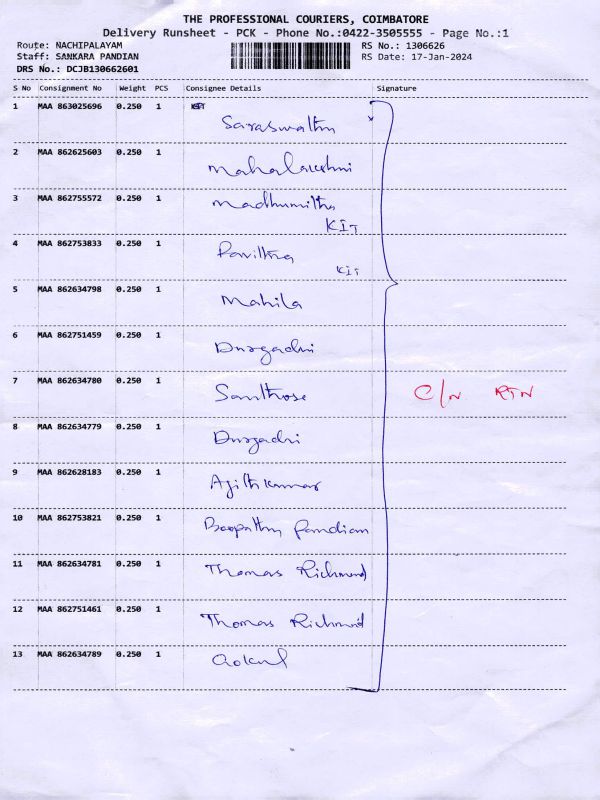 THE PROFESSIONAL COURIERS, COIMBATORE
Delivery Runsheet - PCK - Phone No.:0422-3505555 - Page No.:1
Route: NACHIPALAYAM RS No.: 1306626
Staff: SANKARA PANDIAN RS Date: 17-Jan-2024
DRS No.: DCJB130662601
S No Consignment No Weight PCS Consignee Details Signature
1 MAA 863025696 0.250 1 KIT
Saraswathy
2 MAA 862625603 0.250 1
Mahalakshmi
3 MAA 862755572 0.250 1 Madhumitha
KIT
4 MAA 862753833 0.250 1
Pavithra
KIT
5 MAA 862634798 0.250 1
Mahila
6 MAA 862751459 0.250 1
Durgadevi
7 MAA 862634780 0.250 1
Santhose C/N RTN
8 MAA 862634779 0.250 1
Durgadevi
9 MAA 862628183 0.250 1
Ajithkumar
10 MAA 862753821 0.250 1
Boopathy Pandian
11 MAA 862634781 0.250 1
Thomas Richmond
12 MAA 862751461 0.250 1
Thomas Richmond
13 MAA 862634789 0.250 1
Gokul